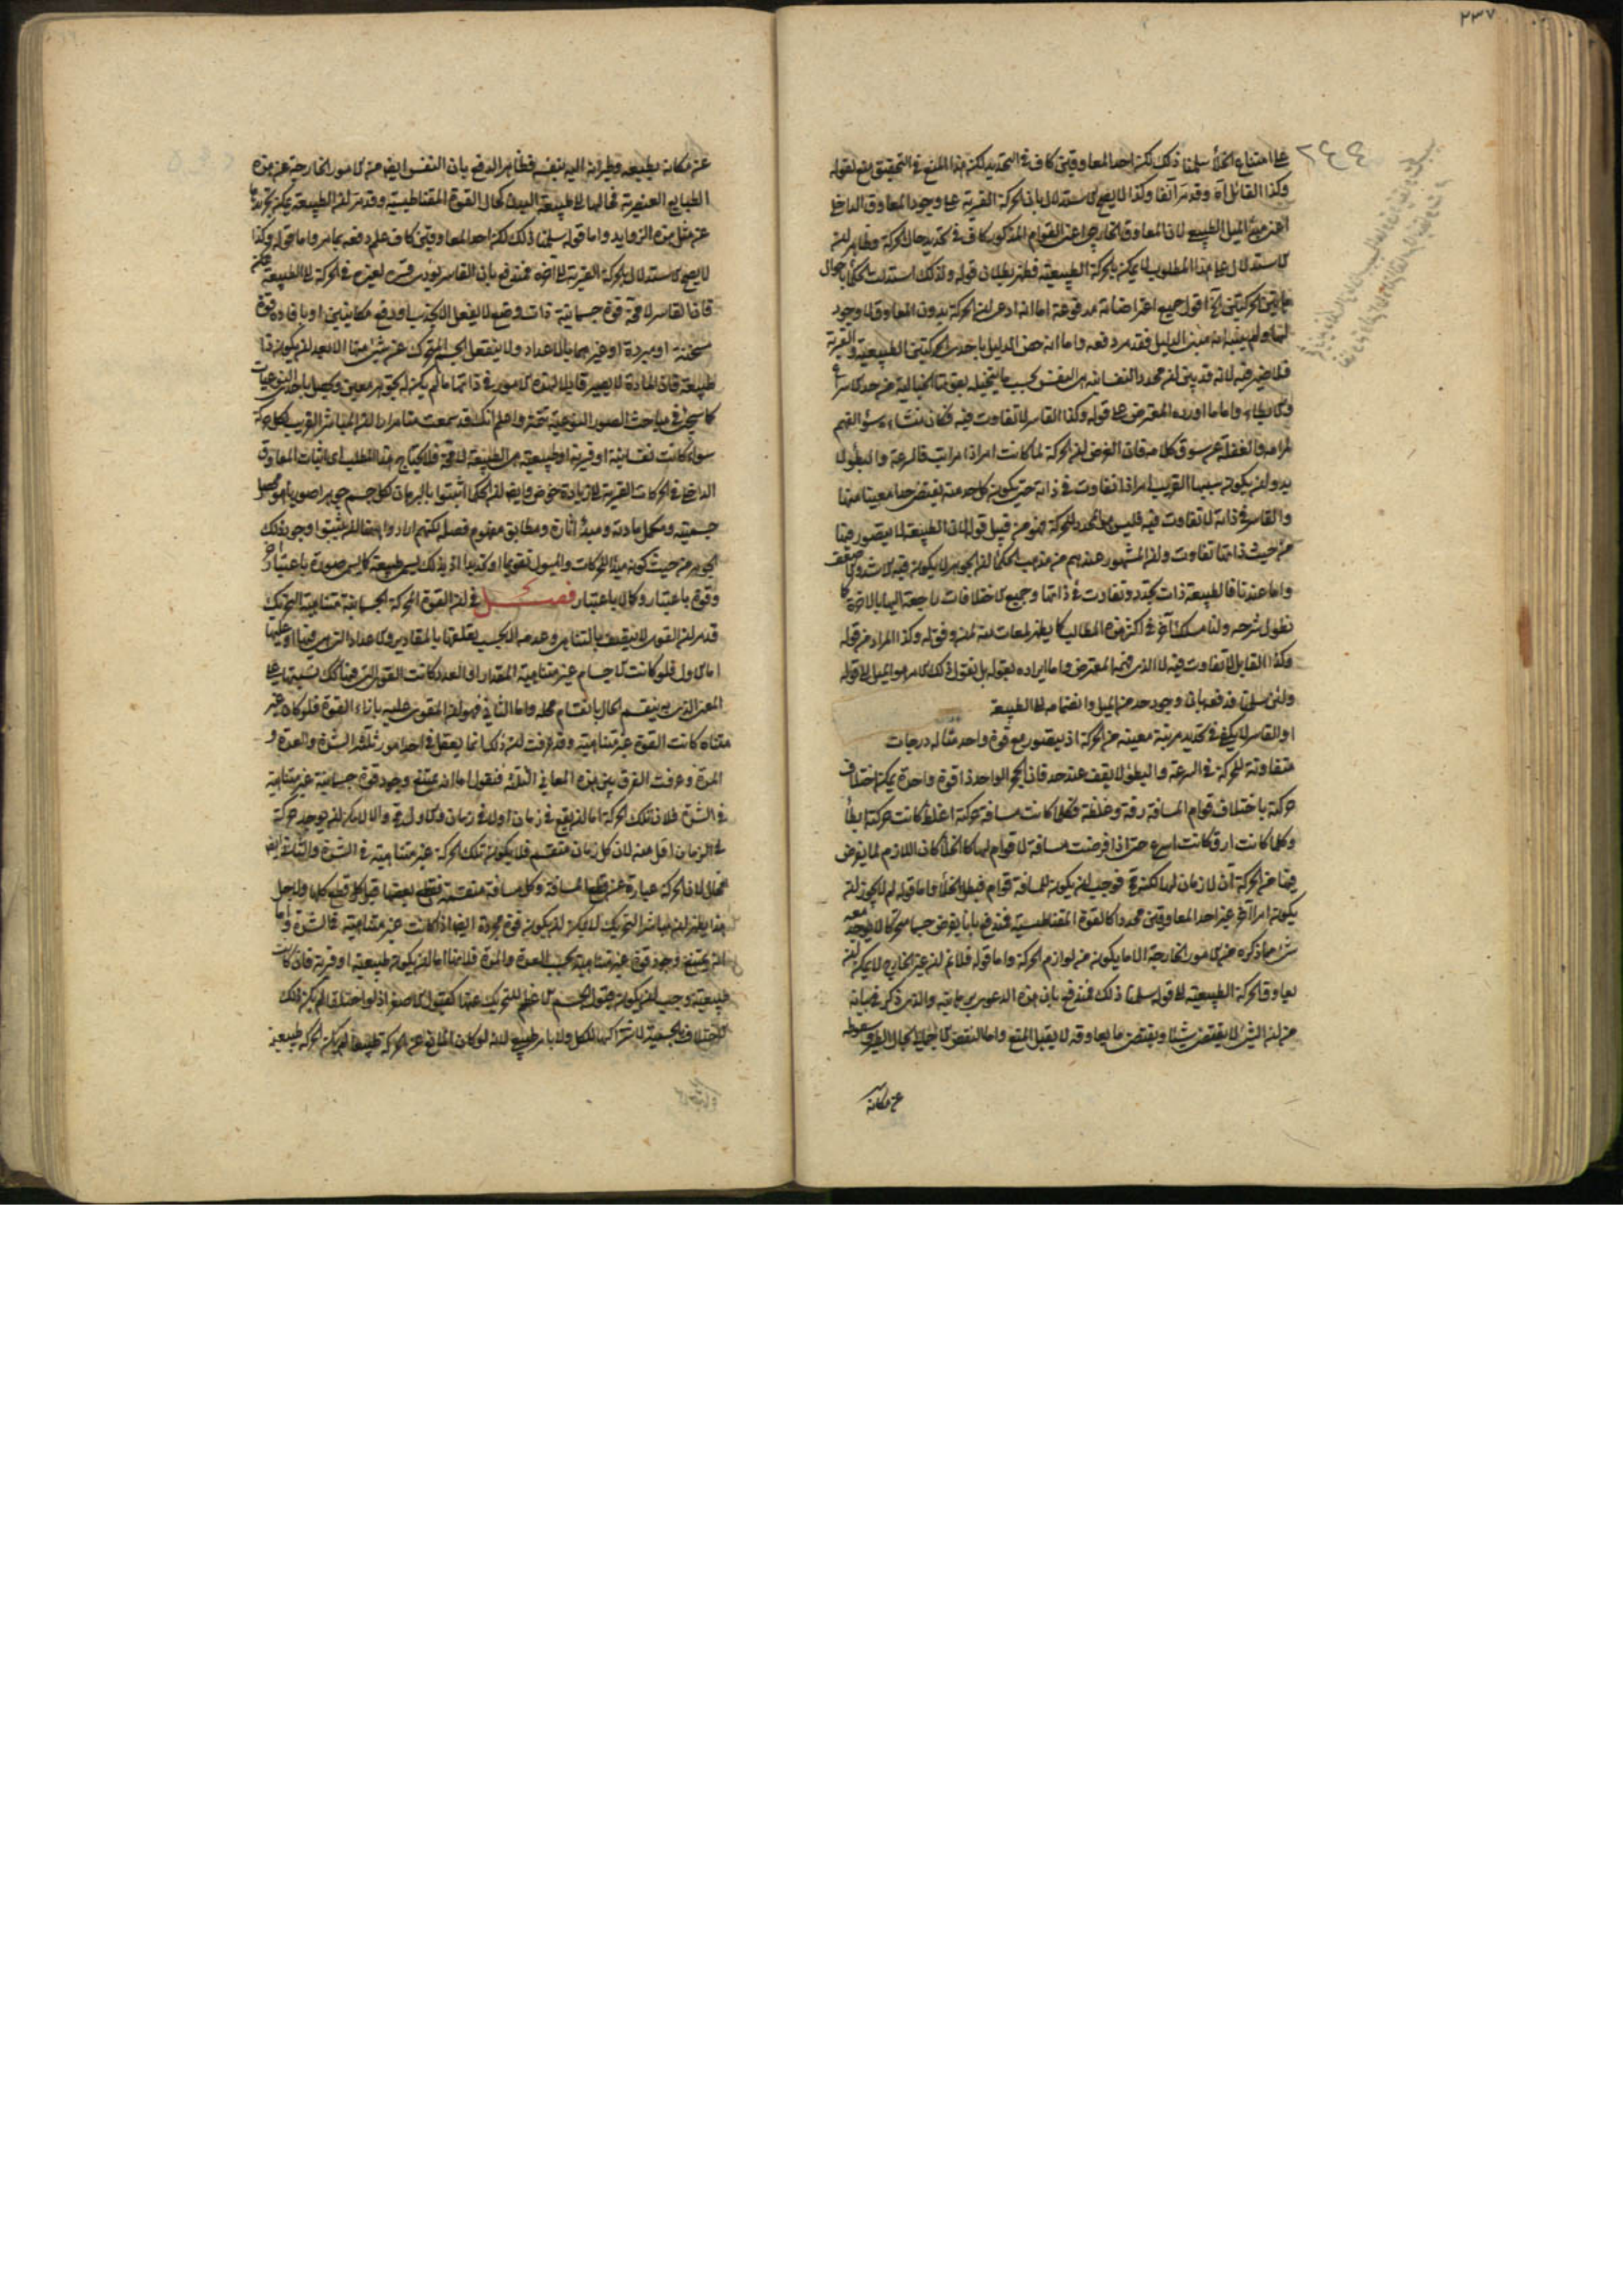 ٢٣٧
٢٤٤
على امتناع الخلأ سلمنا ذلك لكن احد المعاوقين كاف في التحديد لكن هذا المنع في التحقيق منع لقوله
وكذا القائل آه وقد مر آنفا وكذا لا يصح الاستدلال بان الحركة القسرية على وجود المعاوق الداخل
اعنى مبدأ الميل الطبيعي لان المعاوق الخارجي اعنى القوام المذكور كاف في تحديد حال الحركة وظاهر ان
الاستدلال على هذا المطلوب لا يمكن بالحركة الطبيعية فظهر بطلان قوله ولذلك استدلت الحكما باحوال
هاتين الحركتين آه اقول جميع اعتراضاته مدفوعة اما انه ادعى ان الحركة بدون المعاوق لا وجود
لها ولم يبينه انه مبنى الدليل فقد مر دفعه واما انه خص الدليل باحدى الحركتين الطبيعية والقسرية
فلا ضير فيه لانه قد بين ان محدد النفسانية هى النفس بحسب ما يتخيله بقوتها الخيالية من حد الاسراع
والابطاء واما ما اورده المعترض على قوله وكذا القاسر لا تفاوت فيه فكان منشاءه سوء الفهم
لمرامه والغفلة عن سوق كلامه فان الغرض ان الحركة لما كانت امرا ذا مراتب فى السرعة والبطؤ لا
بد وان يكون سببها القريب امرا ذا تفاوت في ذاته حتى يكون كل حد منه يقتضى حدا معينا منها
والقاسر في ذاته لا تفاوت فيه فليس هو المحدد للحركة فهو من قبيل قولنا ان الطبيعة لا يتصور فيها
من حيث ذاتها تفاوت وان المشهور عندهم من مذهب الحكما ان الجوهر لا يكون فيه الاشد والاضعف
واما عندنا فالطبيعة ذات تجدد وتفاوت في ذاتها وجميع الاختلافات راجعة اليها بالاخرة كما
نطول شرحه ولنا مسلك آخر في اكثر هذه المطالب كما يظهر لمعات منه لمن وفق له وكذا المراد من قوله
وكذا القابل لا تفاوت فيه لا الذى فهمه المعترض واما ايراده بقوله بل نقول ذلك الامر هو الميل الى قوله
ولئن سلمنا فدفعه بان وجود حد من الميل وانضمامه الى الطبيعة
او القاسر لا يكفى في تحديد مرتبة معينة من الحركة اذ يتصور مع قوة واحدة مثاله درجات
متفاوتة للحركة في السرعة والبطؤ لا يقف عند حد فان الحجر الواحد ذا قوة واحدة يمكن اختلاف
حركته باختلاف قوام المسافة رقة وغلظة فكلما كانت مسافة حركته اغلظ كانت حركته ابطأ
وكلما كانت ارق كانت اسرع حتى اذا فرضت مسافة لا قوام لها كالخلأ كان اللازم لما يفرض
فيها من الحركة ان لا زمان لها لكنه مح فوجب ان يكون للمسافة قوام فبطل الخلأ واما قوله لم لا يجوز ان
يكون امرا آخر غير احد المعاوقين محددا كالقوة المقناطيسية فندفع بانا نفرض جسما متحركا لا يوجد معه
شئ مما ذكره من الامور الخارجة الا ما يكون من لوازم الحركة واما قوله فلا نم ان غير الخارج لا يمكن ان
يعاوق الحركة الطبيعية الى قوله سلمنا ذلك فمندفع بان هذه الدعوى برهانية والذى ذكر في بيانه
من ان الشئ لا يقتضى شيئا ويقتضى ما يعاوقه لا يقبل المنع واما النقض لا جمالى بحال الطير وسقوطه
عن مكانه
عن مكانه بطبيعه وطيرانه اليه بنفسه فظاهر الدفع بان النفس ايضا من الامور الخارجة عن هذه
الطبايع العنصرية فحالها الى طبيعة البدن كحال القوة المقناطيسية وقد مر ان الطبيعة يمكن تجريدها
عن مثل هذه الزوايد واما قوله سلمنا ذلك لكن احد المعاوقين كاف علم دفعه بما مر واما قوله وكذا
لا يصح الاستدلال بالحركة القسرية الى آخره فمندفع بان القاسر
فان القاسر لا محة قوة جسمانية ذات وضع لا يفعل الا بجذب او دفع مكانيين او بافادة قوة
مسخنة او مبردة او غيرهما بالاعداد ولا ينفعل الجسم المتحرك عن شئ منها الا بعد ان يكون ذا
طبيعة فان المادة لا يصير قابلا لهذه الامور في ذاتها ما لم يكن لها تجوهر معين وتحصل باحدى النوعيات
كما سيجئ في مباحث الصور النوعية تمة واعلم انك قد سمعت منا مرارا ان المباشر القريب لكل حركة
سواء كانت نفسانية او قسرية او طبيعية هى الطبيعة لا محة فلا يحتاج هذا المطلب اى اثبات المعاوق
الداخلى في الحركات القسرية الى زيادة خوض وايضا ان الحكما اثبتوا بالبرهان لكل جسم جوهرا صوريا هو محصل
جسميته ومكمل مادته ومبدأ آثاره ومطابق مفهوم فصله لكنهم ارادوا ههنا ان يثبتوا وجود ذلك
الجوهر من حيث كونه مبدأ للحركات والميول تقويما او تحديدا اذ بذلك يسمى طبيعة كما يسمى صورة باعتبار آخر
وقوة باعتبار وكمال باعتبار فصل في ان القوة المحركة الجسمانية متناهية التحريك
قد مر ان القوى لا يتصف بالتناهى وعدمه الا بحسب تعلقها بالمقادير والاعداد التى هى فيها او عليها
اما الاول فلو كانت الاجسام غير متناهية المقدار او العدد كانت القوى التى فيها كك نسبتها على
المعنى الذى به ينقسم الحال بانقسام محله واما الثانى فهو ان المقوى عليه بازاء القوة فلو كان غير
متناه كانت القوة غير متناهية وقد عرفت ان ذلك انما يعقل في احد امور ثلثة الشدة والعدة و
المدة وعرفت الفرق بين هذه المعانى الثلثة فنقول اما انه يمتنع وجود قوة جسمانية غير متناهية
في الشدة فلان تلك الحركة اما ان يقع في زمان او لا في زمان والاول مح والا لامكن ان يوجد حركة
في الزمان اقل منه لان كل زمان منقسم فلا يكون تلك الحركة غير متناهية في الشدة والثانى ايضا
محال لان الحركة عبارة عن قطع المسافة وكل مسافة منقسمة فقطع بعضها قبل قطع كلها ولاجل
هذا يظهر ان مباشر التحريك لا يمكن ان يكون قوة مجردة ايضا اذا كانت غير متناهية في الشدة واما
انه يمتنع وجود قوة غير متناهية بحسب العدة والمدة فلانها اما ان يكون طبيعية او قسرية فان كانت
طبيعية وجب ان يكون قبول الجسم الاعظم للتحريك عنها كقبول الاصغر اذ لو اختلفا لم يكن ذلك
الاختلاف بالجسمية لاشتراكها للكل ولا بامر طبيعي لانه لو كان المانع عن الحركة طبيعيا لم يكن الحركة طبيعية